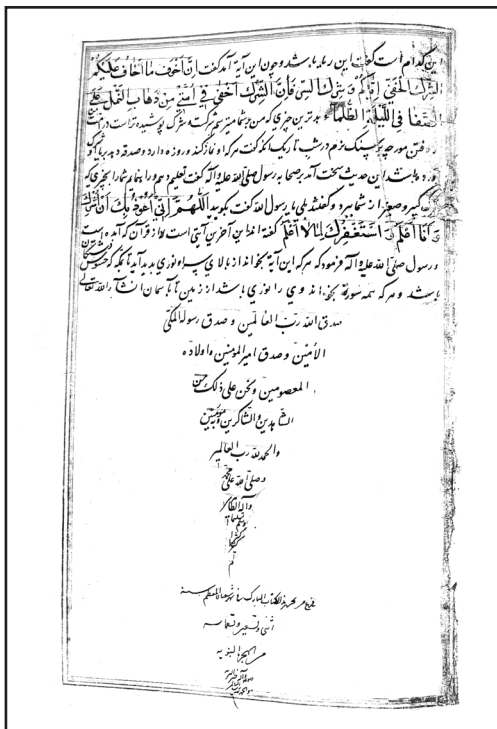 این کدام است گفت این ریا باشد و چون این آیة آمد گفت اِنَّ اَخْوَف ما اَخافُ عَلَیْکُم
الشِّرْكَ الْخَفِیّ اِیّاکُم وَشِرْكَ السِّرِّ فَاِنَّ الشِّرْكَ اَخْفی فی اُمَّتی مِنْ دَبیبِ النَّمْل عَلَی
الصَّفا فِی اللَّیْلَةِ الظَّلْماءِ بدترین چیزی که من بر شما میترسم شرکست و شرک پوشیده‌تر است در امت
از رفتن مورچه بر سنگ نرم در شب تاریک آنکه گفت هرکه او نماز کند و روزه دارد و صدقه دهد بریا او
باشد این حدیث سخت آمد بر صحابه رسول صلّی الله علیه و آله گفت تعلیم دهم و راه نمایم شما را بچیزی که
کبیر و صغیر از شما ببرد گفتند بلی یا رسول الله گفت گوید اَللّهُمَّ اِنّی اَعُوذُ بِكَ اَنْ اُشْرِكَ
وَ اَنَا اَعْلَم وَ اَسْتَغْفِرُكَ لِما لا اَعْلَم گفته‌اند این آخرین آیتی است که از قرآن که آمده است
و رسول صلّی الله علیه و آله فرمود که هرکه این آیة بخواند از بالای سر او نوری بدید آید تا بمکه که حشو
باشد و هرکه همه سورة بخواند وی را نوری باشد از زمین تا بآسمان انشاء الله تعالی
صدق الله ربّ العالمین و صدق رسوله المکّی
الأمین و صدق امیر المؤمنین و اولاده
المعصومین و نحن علی ذلك من
الشاهدین و الشاکرین
والحمد لله رب العالمین
وصلّی الله علی محمد
وآله الطاهرین
وسلم تسلیما
کثیرا
تم
فرغ من تحریر هذا الکتاب المبارك فی شهر شعبان المعظم سنه
اثنی وتسعین وتسعمائه
من الهجرة النبویه